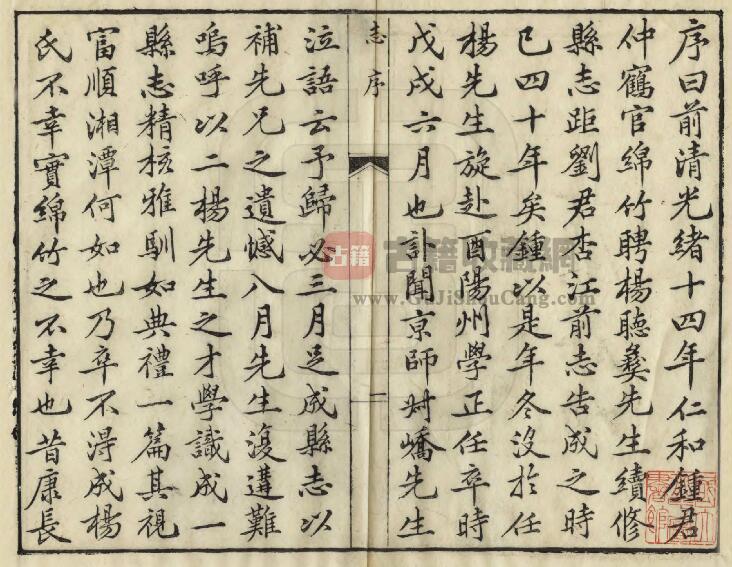 序曰前清光緒十四年仁和鍾君
仲鶴官綿竹聘楊聽彝先生續修
縣志距劉君杏江前志告成之時
已四十年矣鍾以是年冬沒於任
楊先生旋赴酉陽州學正任卒時
戊戌六月也訃聞京師叔嶠先生
志序
一
泣語云予歸必三月足成縣志以
補先兄之遺憾八月先生復遘難
嗚呼以二楊先生之才學識成一
縣志精核雅馴如典禮一篇其視
富順湘潭何如也乃卒不得成楊
氏不幸實綿竹之不幸也昔康長
古籍
古籍收藏網
www.GuJiShouCang.com